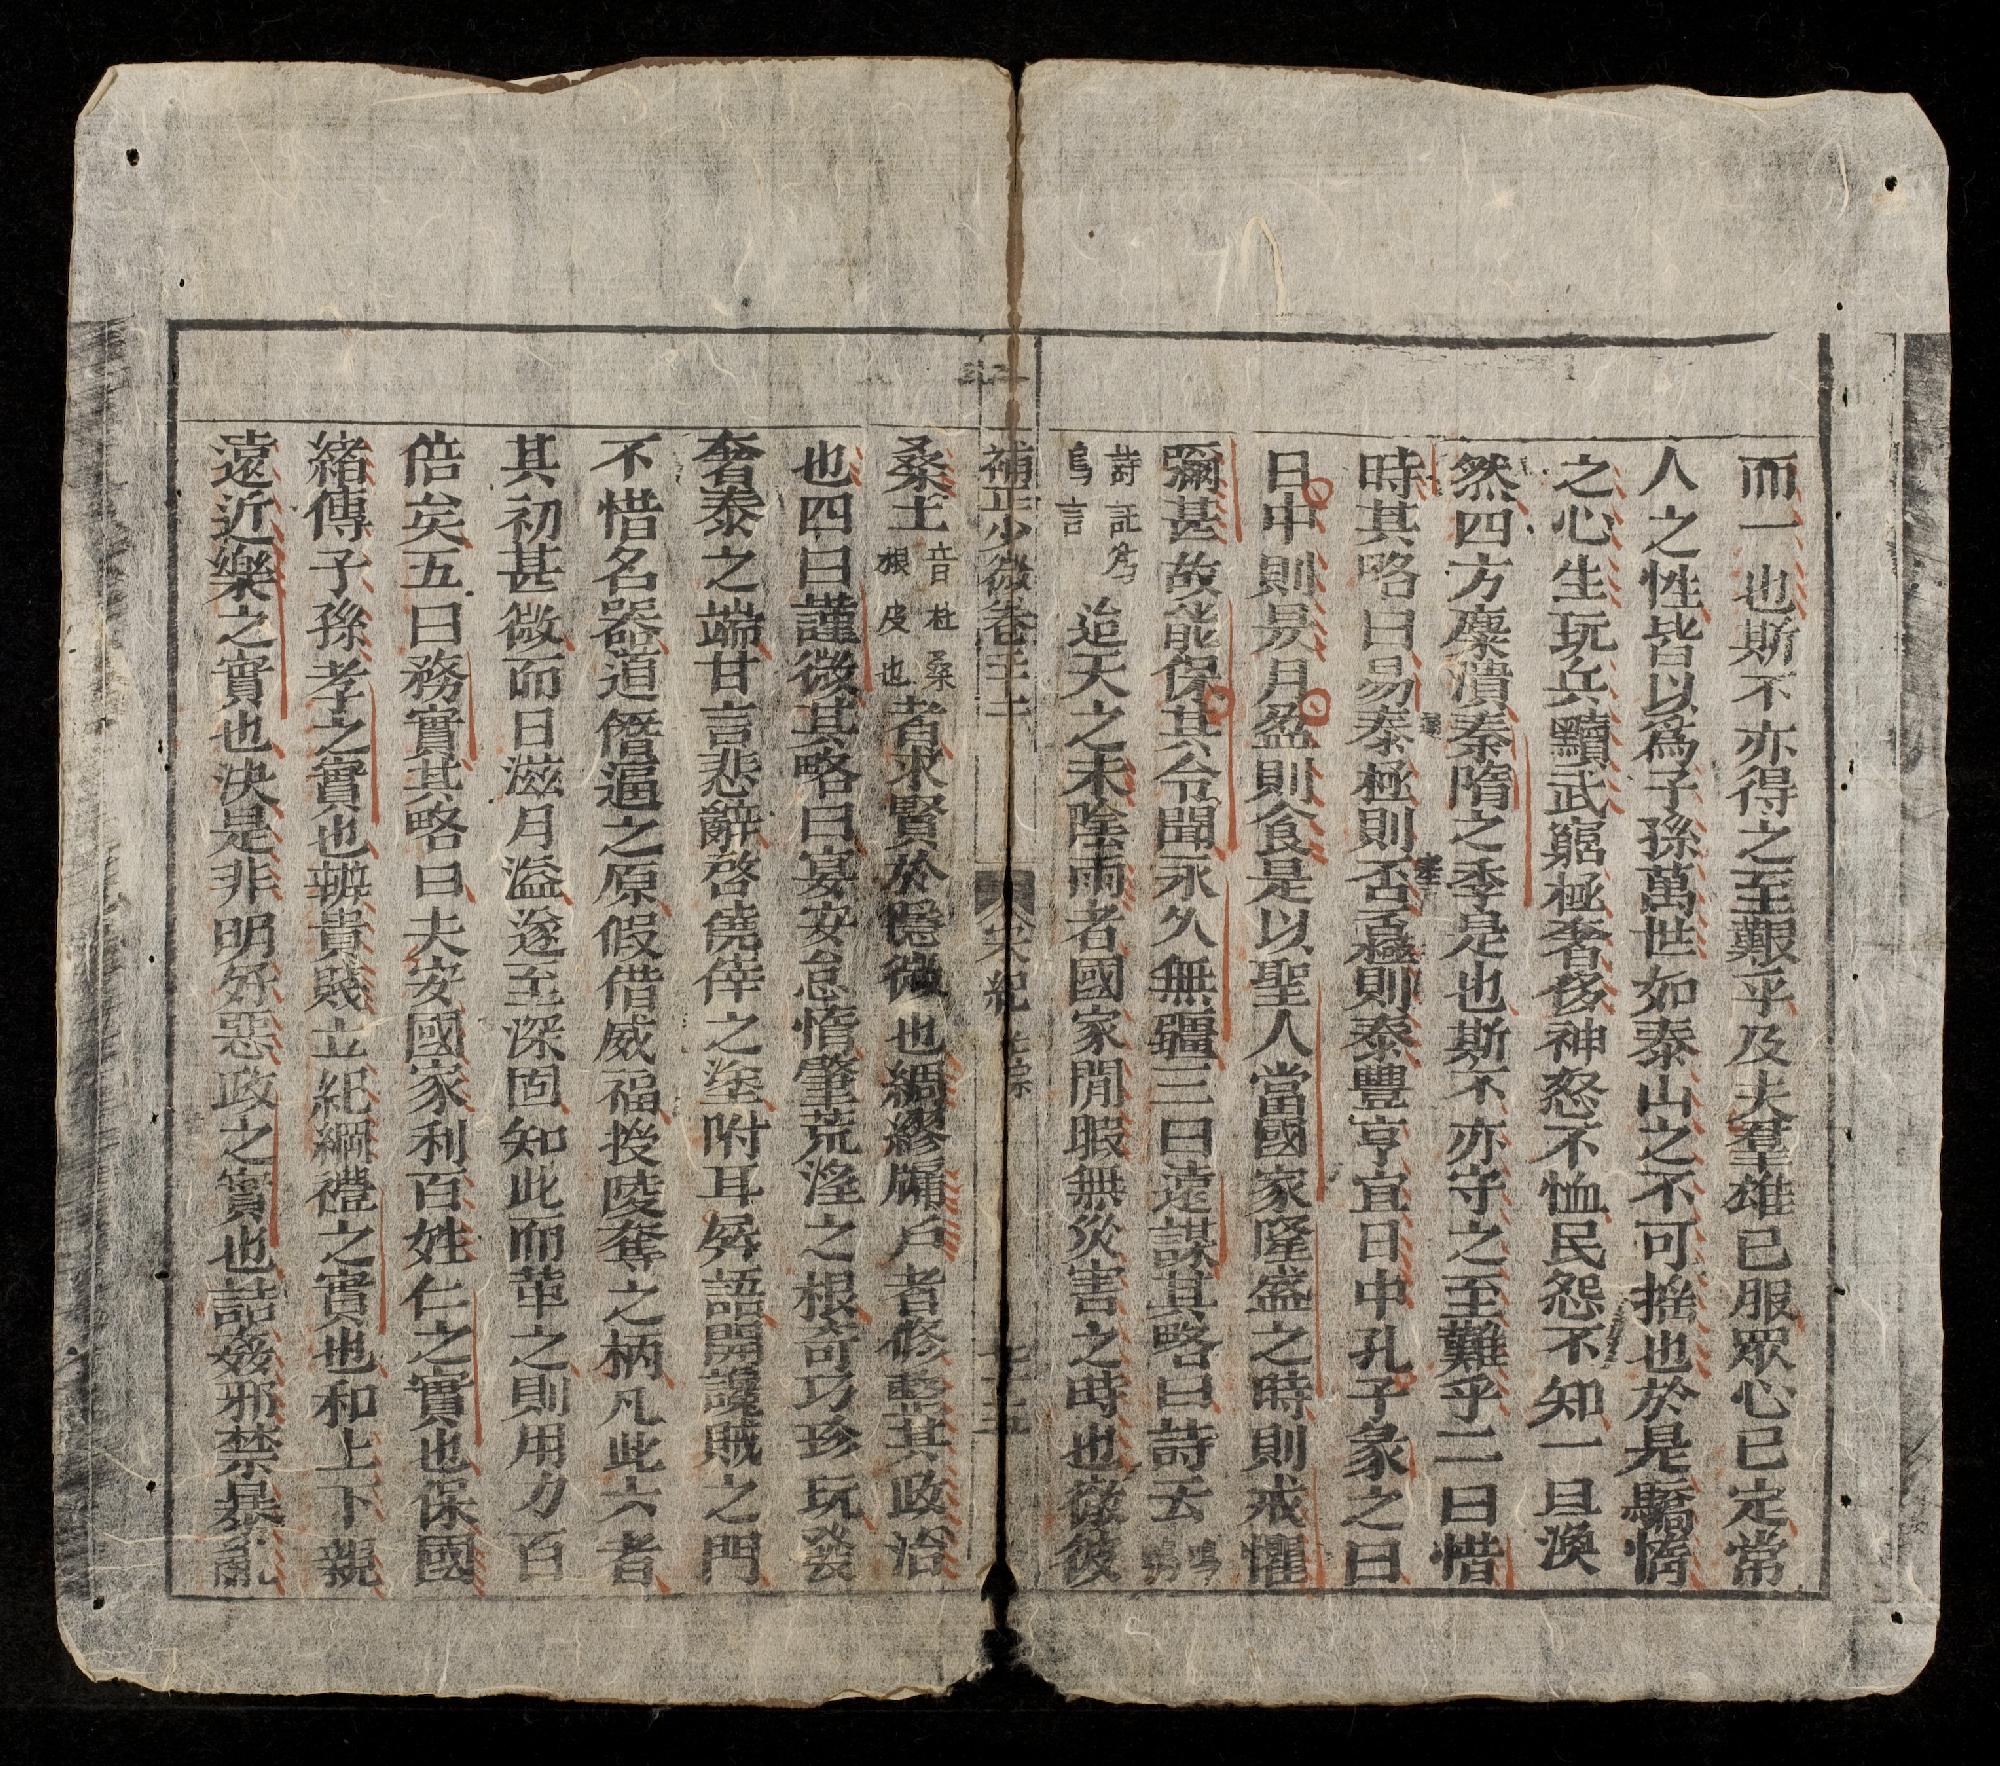 而一也斯不亦得之至艱乎及夫羣雄已服眾心已定常
人之性皆以爲子孫萬世如泰山之不可搖也於是驕惰
之心生玩兵黷武窮極奢侈神怒不恤民怨不知一旦渙
然四方麋潰秦隋之季是也斯不亦守之至難乎二曰惜
時其略曰易泰極則否否極則泰豐亨宜日中孔子象之曰
日中則昃月盈則食是以聖人當國家隆盛之時則戒懼
彌甚故能保其令聞永久無疆三曰遠謀其略曰詩云鴟鴞
詩託爲鳥言迨天之未陰雨者國家閒暇無災害之時也徹彼
補正少微卷三十二
宋紀
桑土音杜桑根皮也者求賢於隱微也綢繆牖戶者修整其政治
也四曰謹微其略曰宴安怠惰肇荒淫之根奇巧珍玩發
奢泰之端甘言悲辭啓僥倖之塗附耳屏語開讒賊之門
不惜名器道僭逼之原假借威福授陵奪之柄凡此六者
其初甚微而日滋月溢遂至深固知此而革之則用力百
倍矣五曰務實其略曰夫安國家利百姓仁之實也保國
緒傳子孫孝之實也辨貴賤立紀綱禮之實也和上下親
遠近樂之實也決是非明好惡政之實也詰姦邪禁暴亂